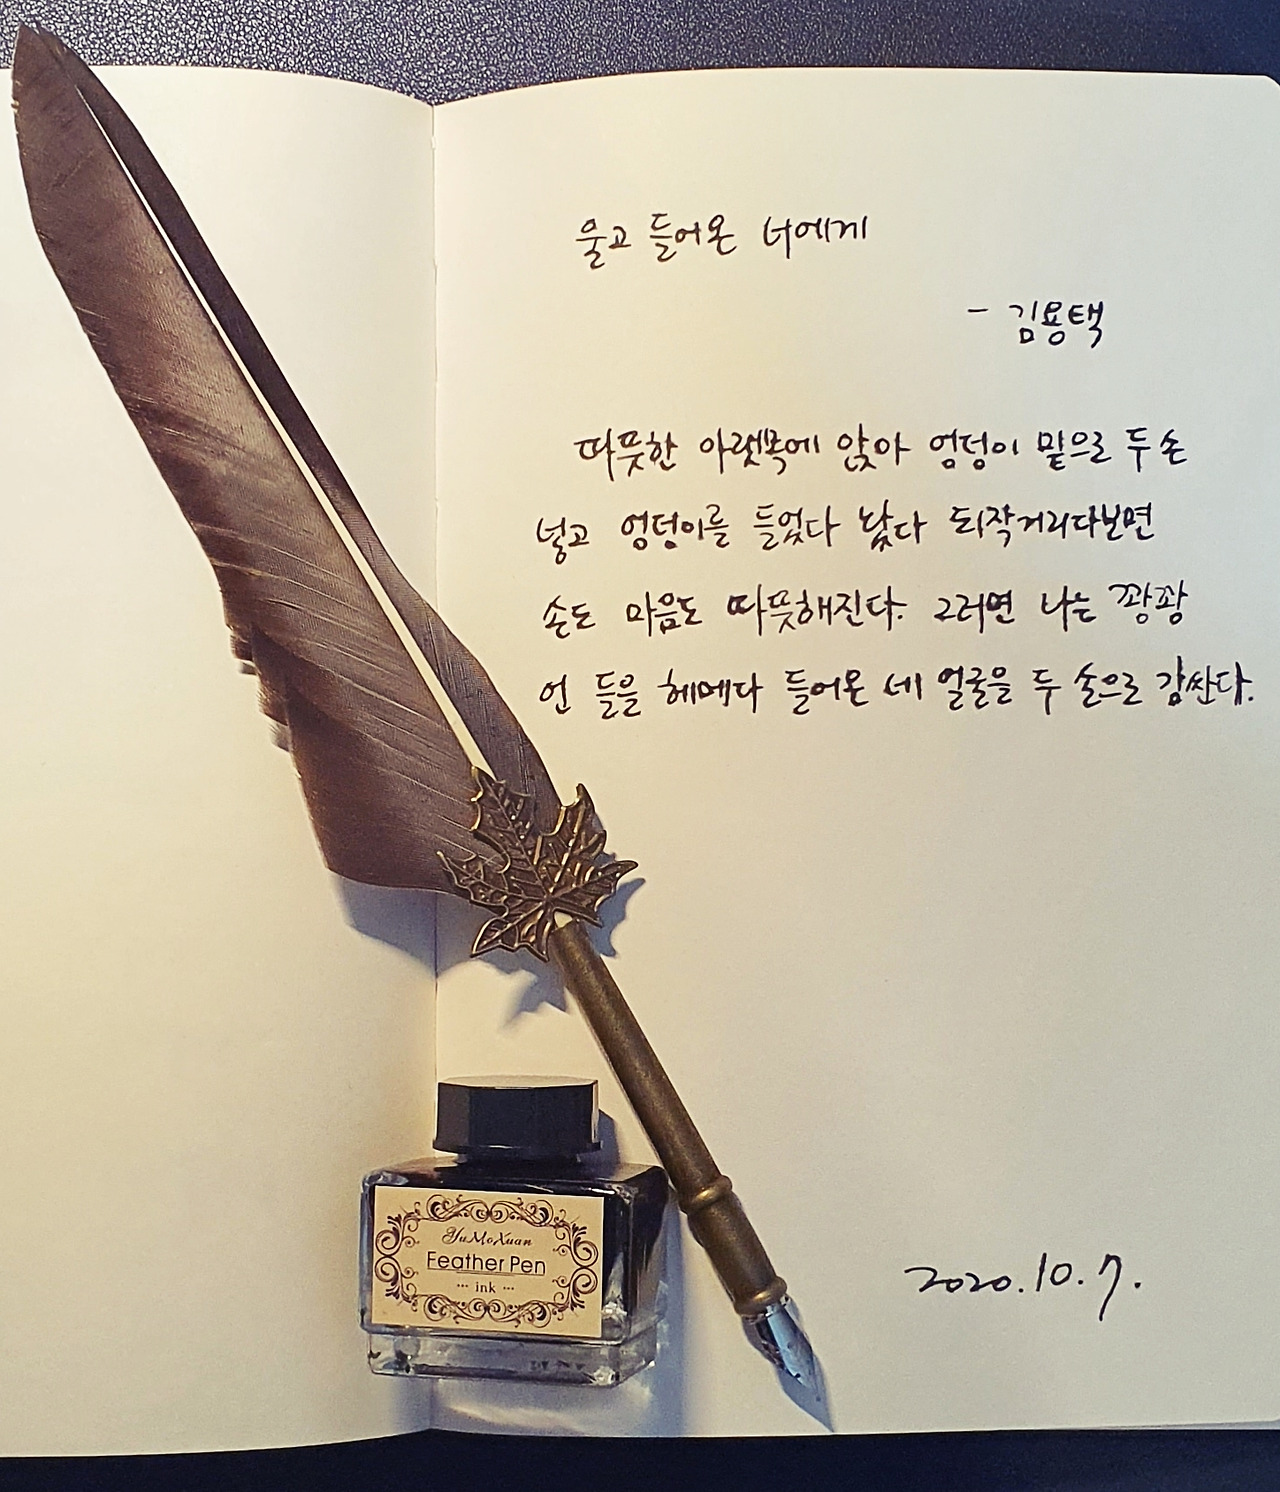 울고 들어온 너에게
- 김용택
따뜻한 아랫목에 앉아 엉덩이 밑으로 두 손
넣고 엉덩이를 들었다 놨다 되작거리다보면
손도 마음도 따뜻해진다. 그러면 나는 꽝꽝
언 들을 헤매다 들어온 네 얼굴을 두 손으로 감싼다.
2020.10.7.
YuMoXuan
Feather Pen
... ink ...